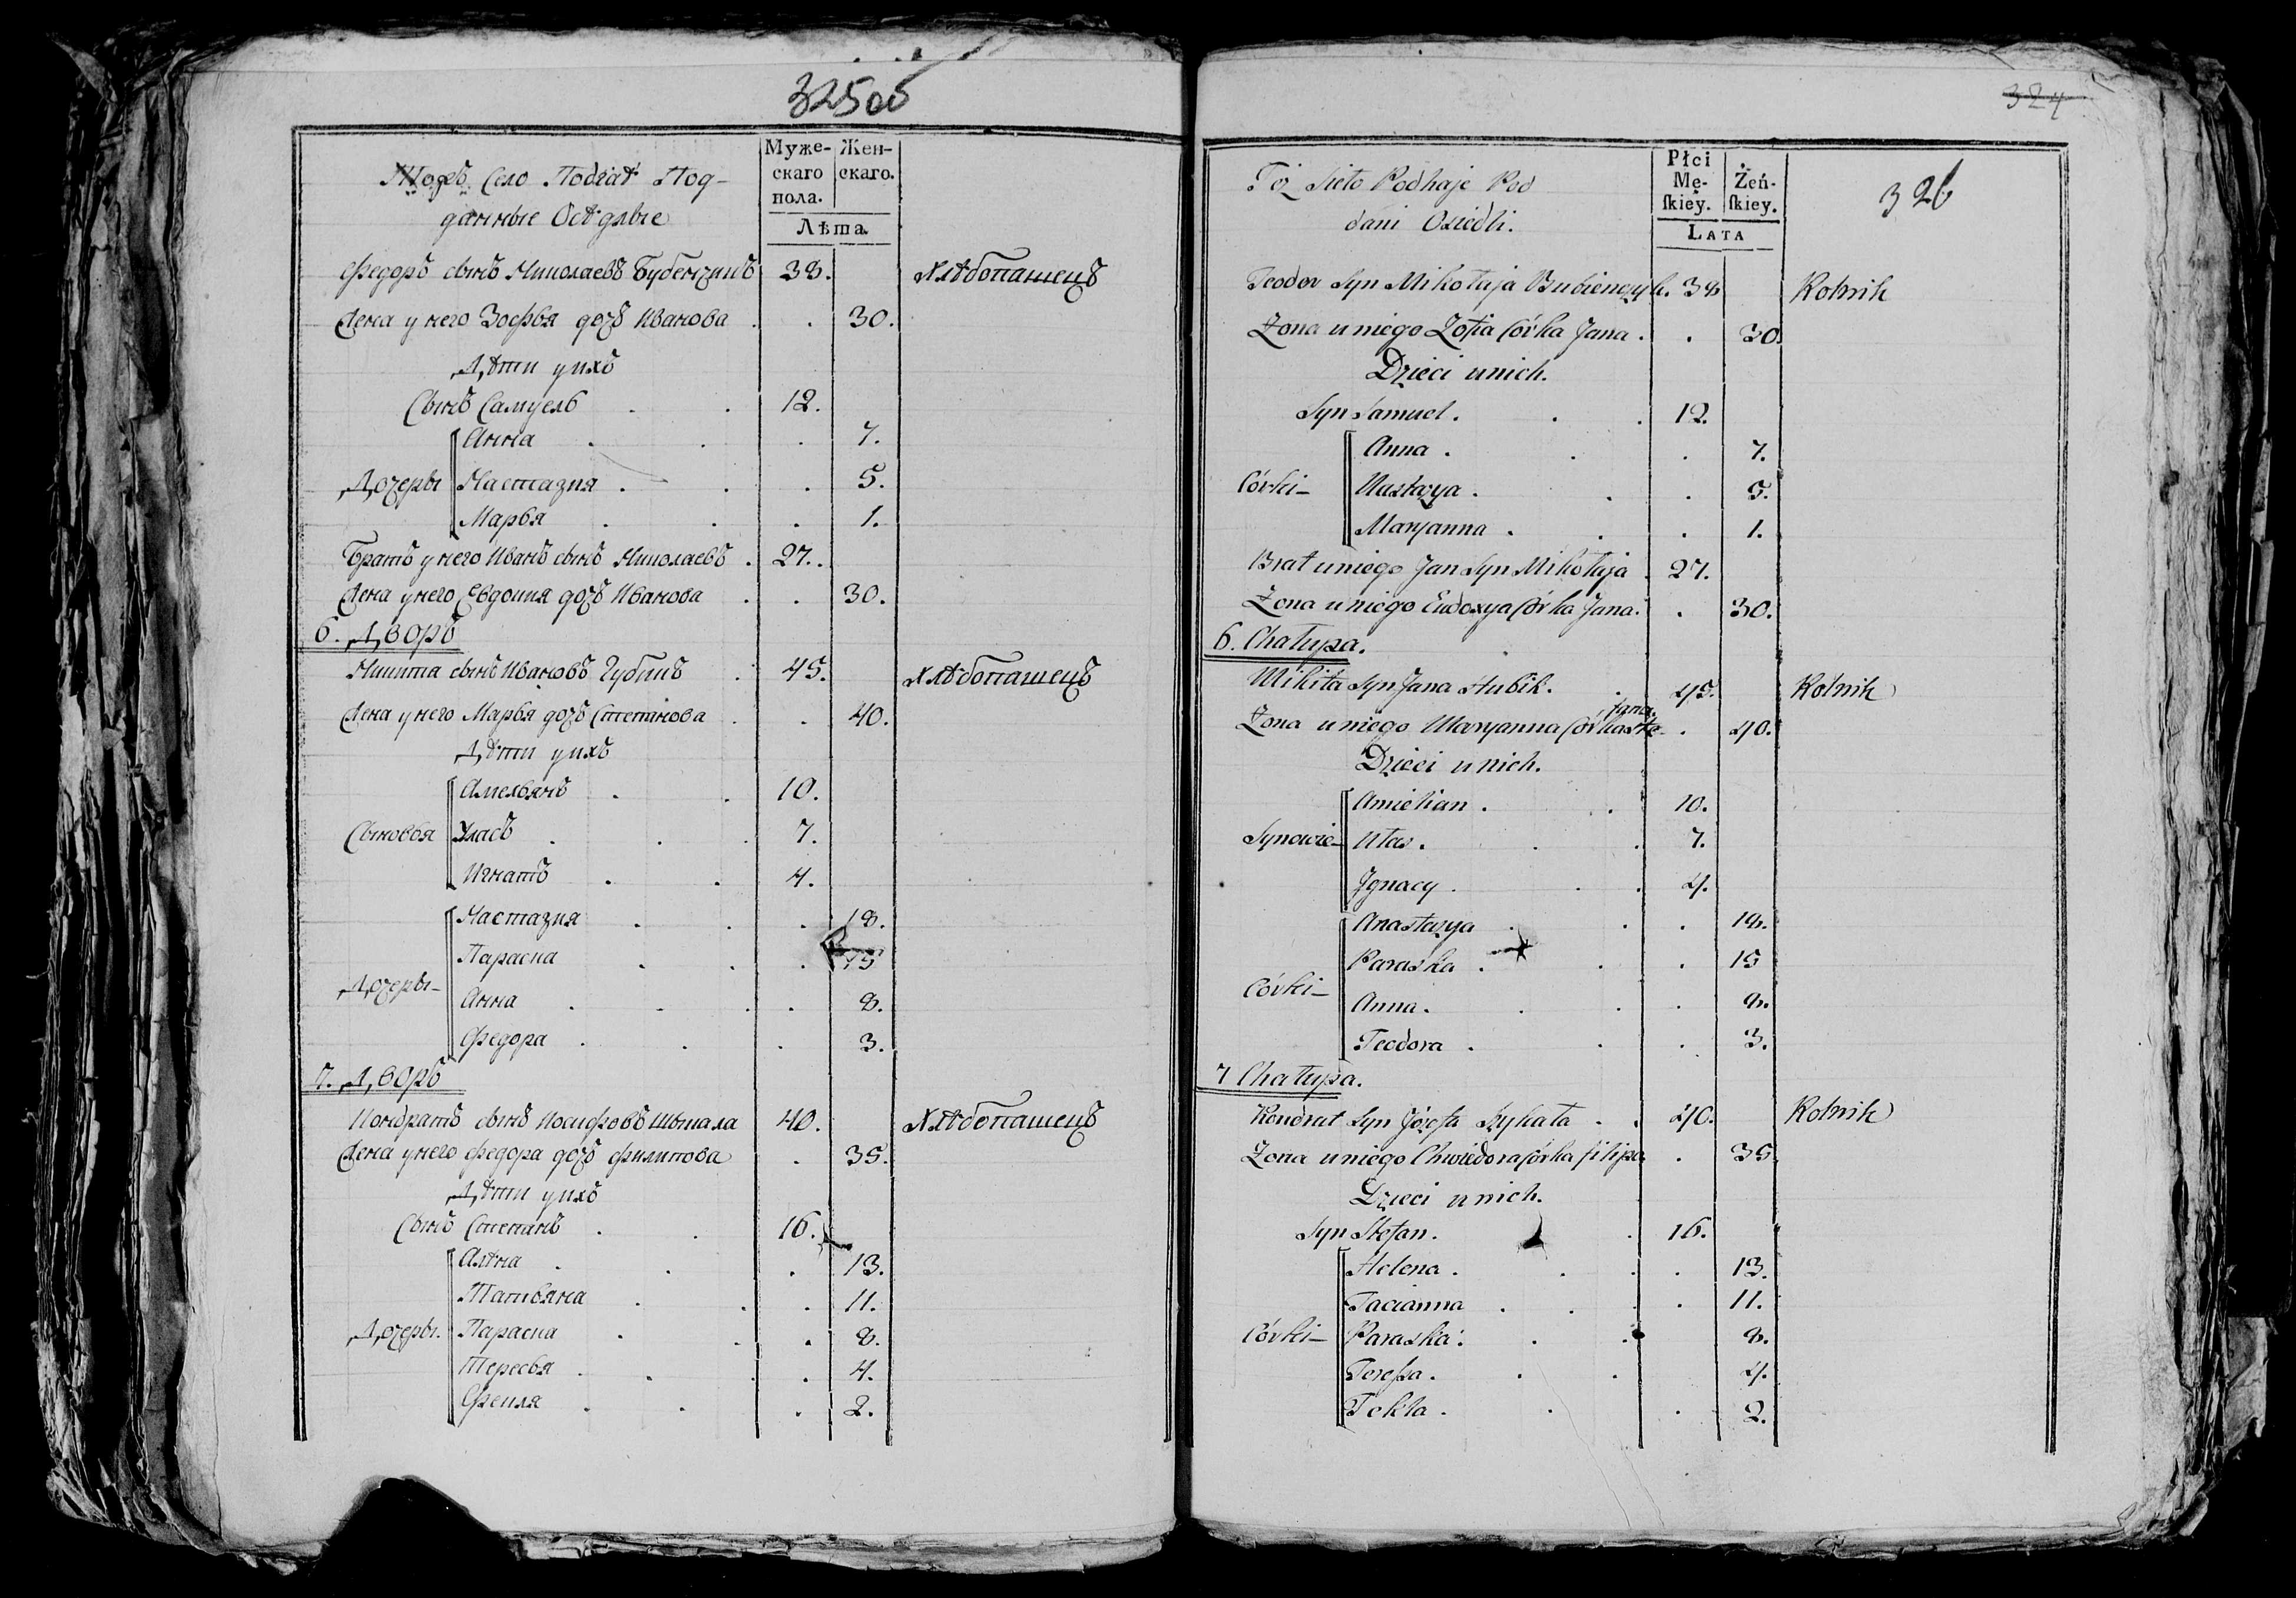 325об
Тожъ Село Подгаѣ Под-
данные Осѣдлые
Муже-
скаго
пола.
Жен-
скаго.
Лѣта.
Федоръ сынъ Николаевъ Бубенчикъ 38. Хлѣбопашецъ
Жена у него Зофья дочь Иванова . . 30.
Дѣти у нихъ
Сынъ Самуель . . 12.
Анна . . . 7.
Дочеры Настазия . . . 5.
Марья . . . 1.
Братъ у него Иванъ сынъ Николаевъ . 27.
Жена у него Евдокия дочь Иванова . . 30.
6. Дворъ
Микита сынъ Ивановъ Губикъ . 45. Хлѣбопашецъ
Жена у него Марья дочь Степанова . . 40.
Дѣти у нихъ
Амельянъ . . 10.
Сыновья Уласъ . . . 7.
Игнатъ . . 4.
Настазия . . . 18.
Параска . . . 15
Дочеры-
Анна . . . . 8.
Федора . . . 3.
7. Дворъ
Кондратъ сынъ Иосифовъ Шыкала 40. Хлѣбопашецъ
Жена у него Федора дочь Филипова . 35.
Дѣти у нихъ
Сынъ Степанъ . . 16.
Алѣна . . . 13.
Татьяна . . . 11.
Дочеры. Параска . . . 8.
Тересья . . . . 4.
Фекля . . . 2.
324
Toż Sieło Podhaje Pod
dani Osiedli.
Płci
Mę-
ſkiey.
Żeń-
ſkiey.
Lata
326
Teodor Syn Mikołaja Bubieńczyk. 38 Rolnik
Żona u niego Zofia Córka Jana . . 30.
Dzieci u nich.
Syn Samuel . . . 12.
Anna . . . 7.
Córki- Nastazya . . . 5.
Maryanna . . . 1.
Brat u niego Jan Syn Mikołaja . 27.
Żona u niego Eudoxya Córka Jana. . 30.
6. Chałupa.
Mikita Syn Jana Hubik. . 45. Rolnik
fana.
Żona u niego Maryanna Córka Ste- . 40.
Dzieci u nich.
Amielian . . 10.
Synowie- Ułas . . . 7.
Jgnacy . . . 4.
Anastazya . . . 18.
Paraska . . . 15
Córki-
Anna . . . . 8.
Teodora . . . 3.
7 Chałupa.
Kondrat Syn Józefa Szykała . . 40. Rolnik
Żona u niego Chwiedora Córka filipa . 35
Dzieci u nich.
Syn Stefan. . 16.
Helena . . . . 13.
Tacianna . . . . 11.
Córki- Paraska . . . 8.
Tereſsa . . . 4.
Tekla . . . 2.